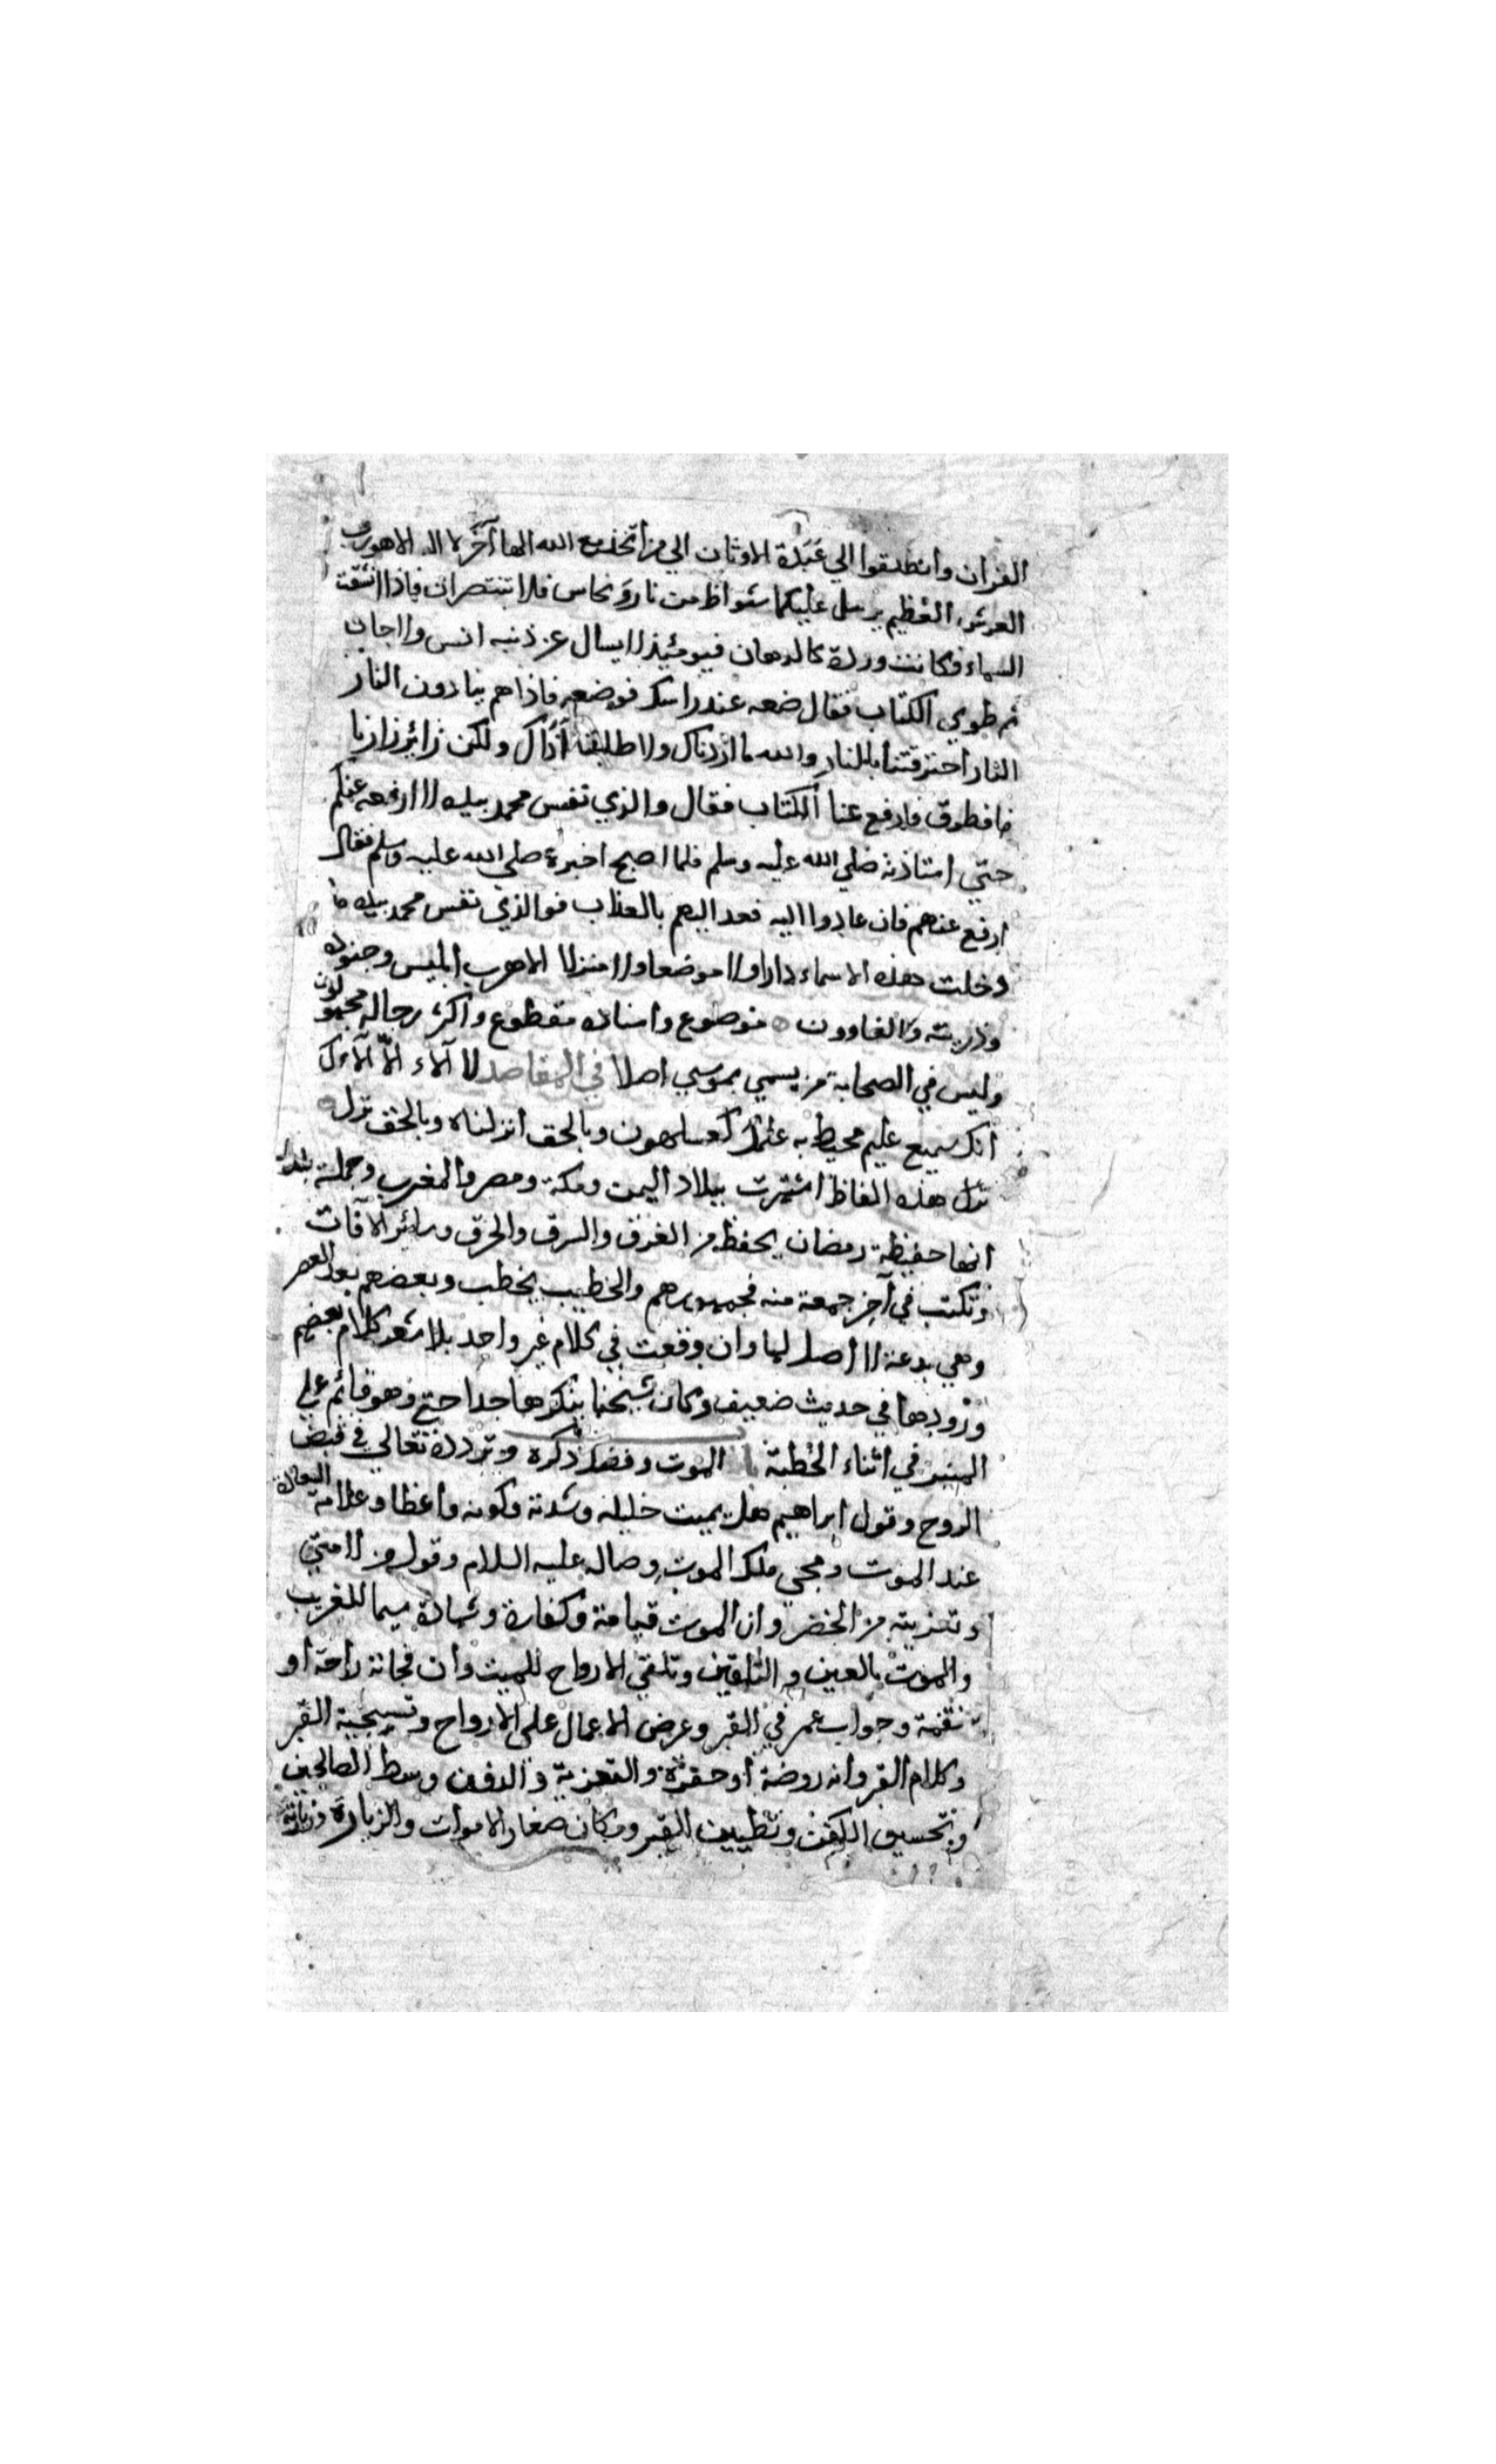 القران وانطلقوا الي عَبَدَة الاوثان الي من اتخذ مع الله الها آخَر لا اله الا هو رب
العرش العظيم يرسل عليكما شواظ من نار وَنحاس فلا تنتصران فاذا انشقت
السماء فكانت وردة كالدهان فيومئذ لا يسال عن ذنبه انس ولا جان
ثم طوي الكتاب فقال ضعه عند راسك فوضعه فاذا هم ينادون النار
النار احترقتنا بالنار والله ما اردناك ولا طلبنا أذاك ولكن زائر زارنا
فارفع عنا الكتاب فقال والذي نفس محمد بيده لا ارفعه عنكم
حتي استاذنه صلي الله عليه وسلم فلما اصبح اخبره صلي الله عليه وسلم فقال
ارفع عنهم فان عادوا اليه فعد اليهم بالعذاب فوالذي نفس محمد بيده ما
دخلت هذه الاسماء دارا ولا موضعا ولا منزلا الا هرب ابليس وجنوده
وذريته والغاوون موضوع واسناده مقطوع واكثر رجاله مجهولون
وليس في الصحابة من يسمي بموسي اصلا في المقاصد لا آلاء الا آلاؤك
انك سميع عليم محيط به علمك كعسلهون وبالحق انزلناه وبالحق نزل
هذه الفاظ اشتهرت ببلاد اليمن ومكة ومصر والمغرب وجملة بلدان
انها حفيظة رمضان يحفظ من الغرق والسرق والحرق وسائر الافات
وتكتب في آخِر جمعة منه فجمهورهم والخطيب يخطب وبعضهم بعد العصر
وهي بدعة لا أصل لها وان وقعت في كلام غير واحد بلا شعر كلام بعضهم
ورُودها في حديث ضعيف وكان شيخنا ينكرها جدا حتي وهو قائم علي
المنبر في اثناء الخطبة الموت وفضل ذكره وتردده تعالي في قبض
الروح وقول ابراهيم هل يميت خليله وشدته وكونه واعظا وعلامة السعادة
عند الموت ومجي ملك الموت وصاله عليه السلام وقول من لامتي
وتعزيته من الخضر وان الموت قيامة وكفارة وشهادة سيما للغريب
والموت بالعين والتلقين وتلقي الارواح للميت وان فجاته راحة او
نقمة وجواب عمر في القبر وعرض الاعمال علي الارواح وتسجية القبر
وكلام القبر وانه روضة أو حفرة والتعزية والدفن وسط الصالحين
وتحسين الكفن وتطيين القبر ومكان صغار الاموات والزيارة